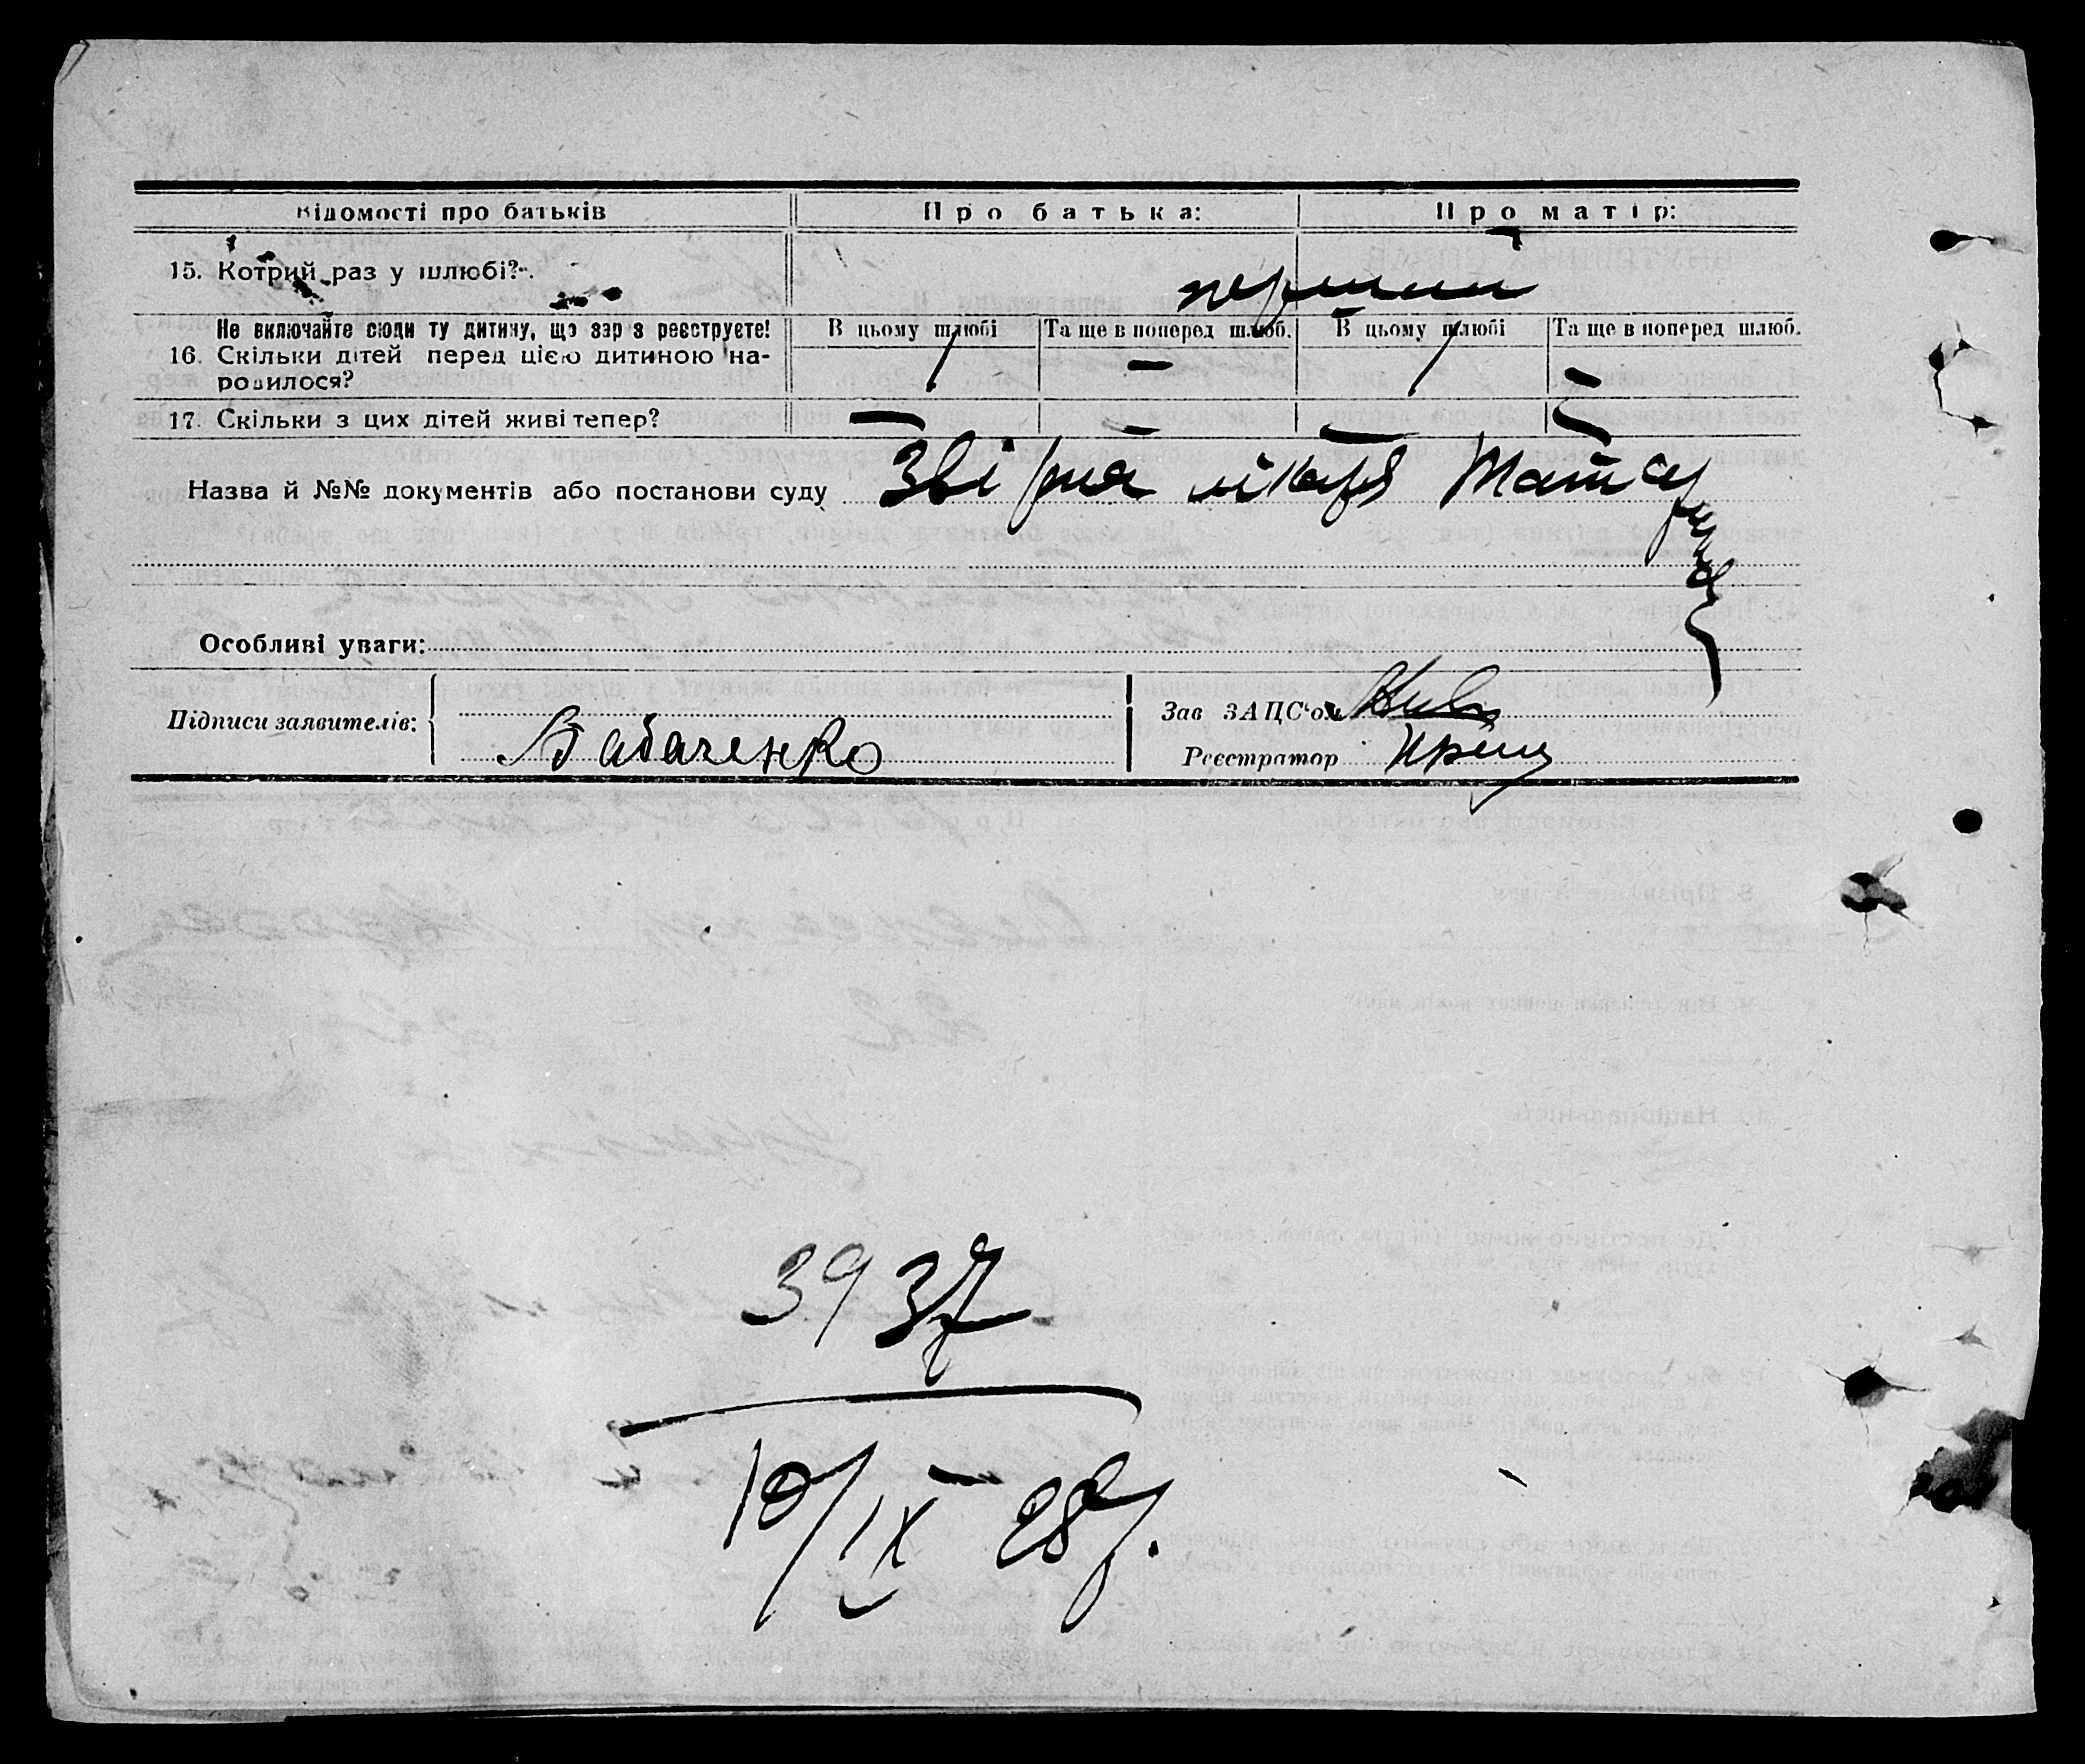 Відомості про батьків Про батька: Про матір:
15. Котрий раз у шлюбі? перший
Не включайте сюди ту дитину, що зараз реєструєте! В цьому шлюбі Та ще в поперед шлюб. В цьому шлюбі Та ще в поперед шлюб.
16. Скільки дітей перед цією дитиною на- 1 — 1 —
родилося?
17. Скільки з цих дітей живі тепер? — — — —
Назва й №№ документів або постанови суду лікаря
Особливі уваги:
Підписи заявителів: Зав ЗАЦС‘ом
Бабаченко Реєстратор
3937
10/IX - 28 р.